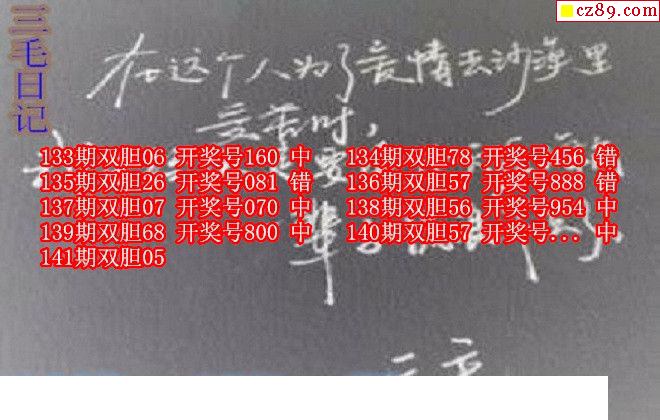 三毛日记
cz89.com
在这个人为了爱情去沙漠里
受苦时，
133期双胆06 开奖号160 中 134期双胆78 开奖号456 错
135期双胆26 开奖号081 错 136期双胆57 开奖号888 错
137期双胆07 开奖号070 中 138期双胆56 开奖号954 中
139期双胆68 开奖号800 中 140期双胆57 开奖号... 中
141期双胆05